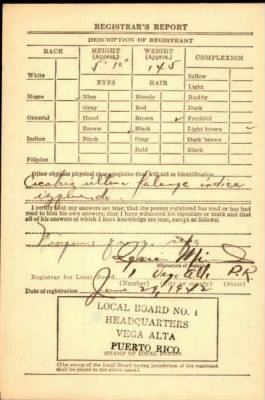 REGISTRAR'S REPORT
DESCRIPTION OF REGISTRANT
RACE HEIGHT (Approx.) WEIGHT (Approx.) COMPLEXION
5' 10" 145
White Sallow
EYES HAIR Light
Negro Blue Blonde Ruddy
Gray Red Dark
Oriental Hazel Brown ✓ Freckled
Brown Black Light brown ✓
Indian Black Gray Dark brown
Bald Black
Filipino
Other obvious physical characteristics that will aid in identification
Cicatriz ultima falange indice
izquierdo
I certify that my answers are true; that the person registered has read or has had
read to him his own answers; that I have witnessed his signature or mark and that
all of his answers of which I have knowledge are true, except as follows:
Registrar for Local Board 1 Vega Alta P.R.
(Number) (City or county) (State)
Date of registration June 29, 1942
LOCAL BOARD NO. 1
HEADQUARTERS
VEGA ALTA
PUERTO RICO
STAMP OF LOCAL BOARD
(The stamp of the Local Board having jurisdiction of the registrant
shall be placed in the above space)